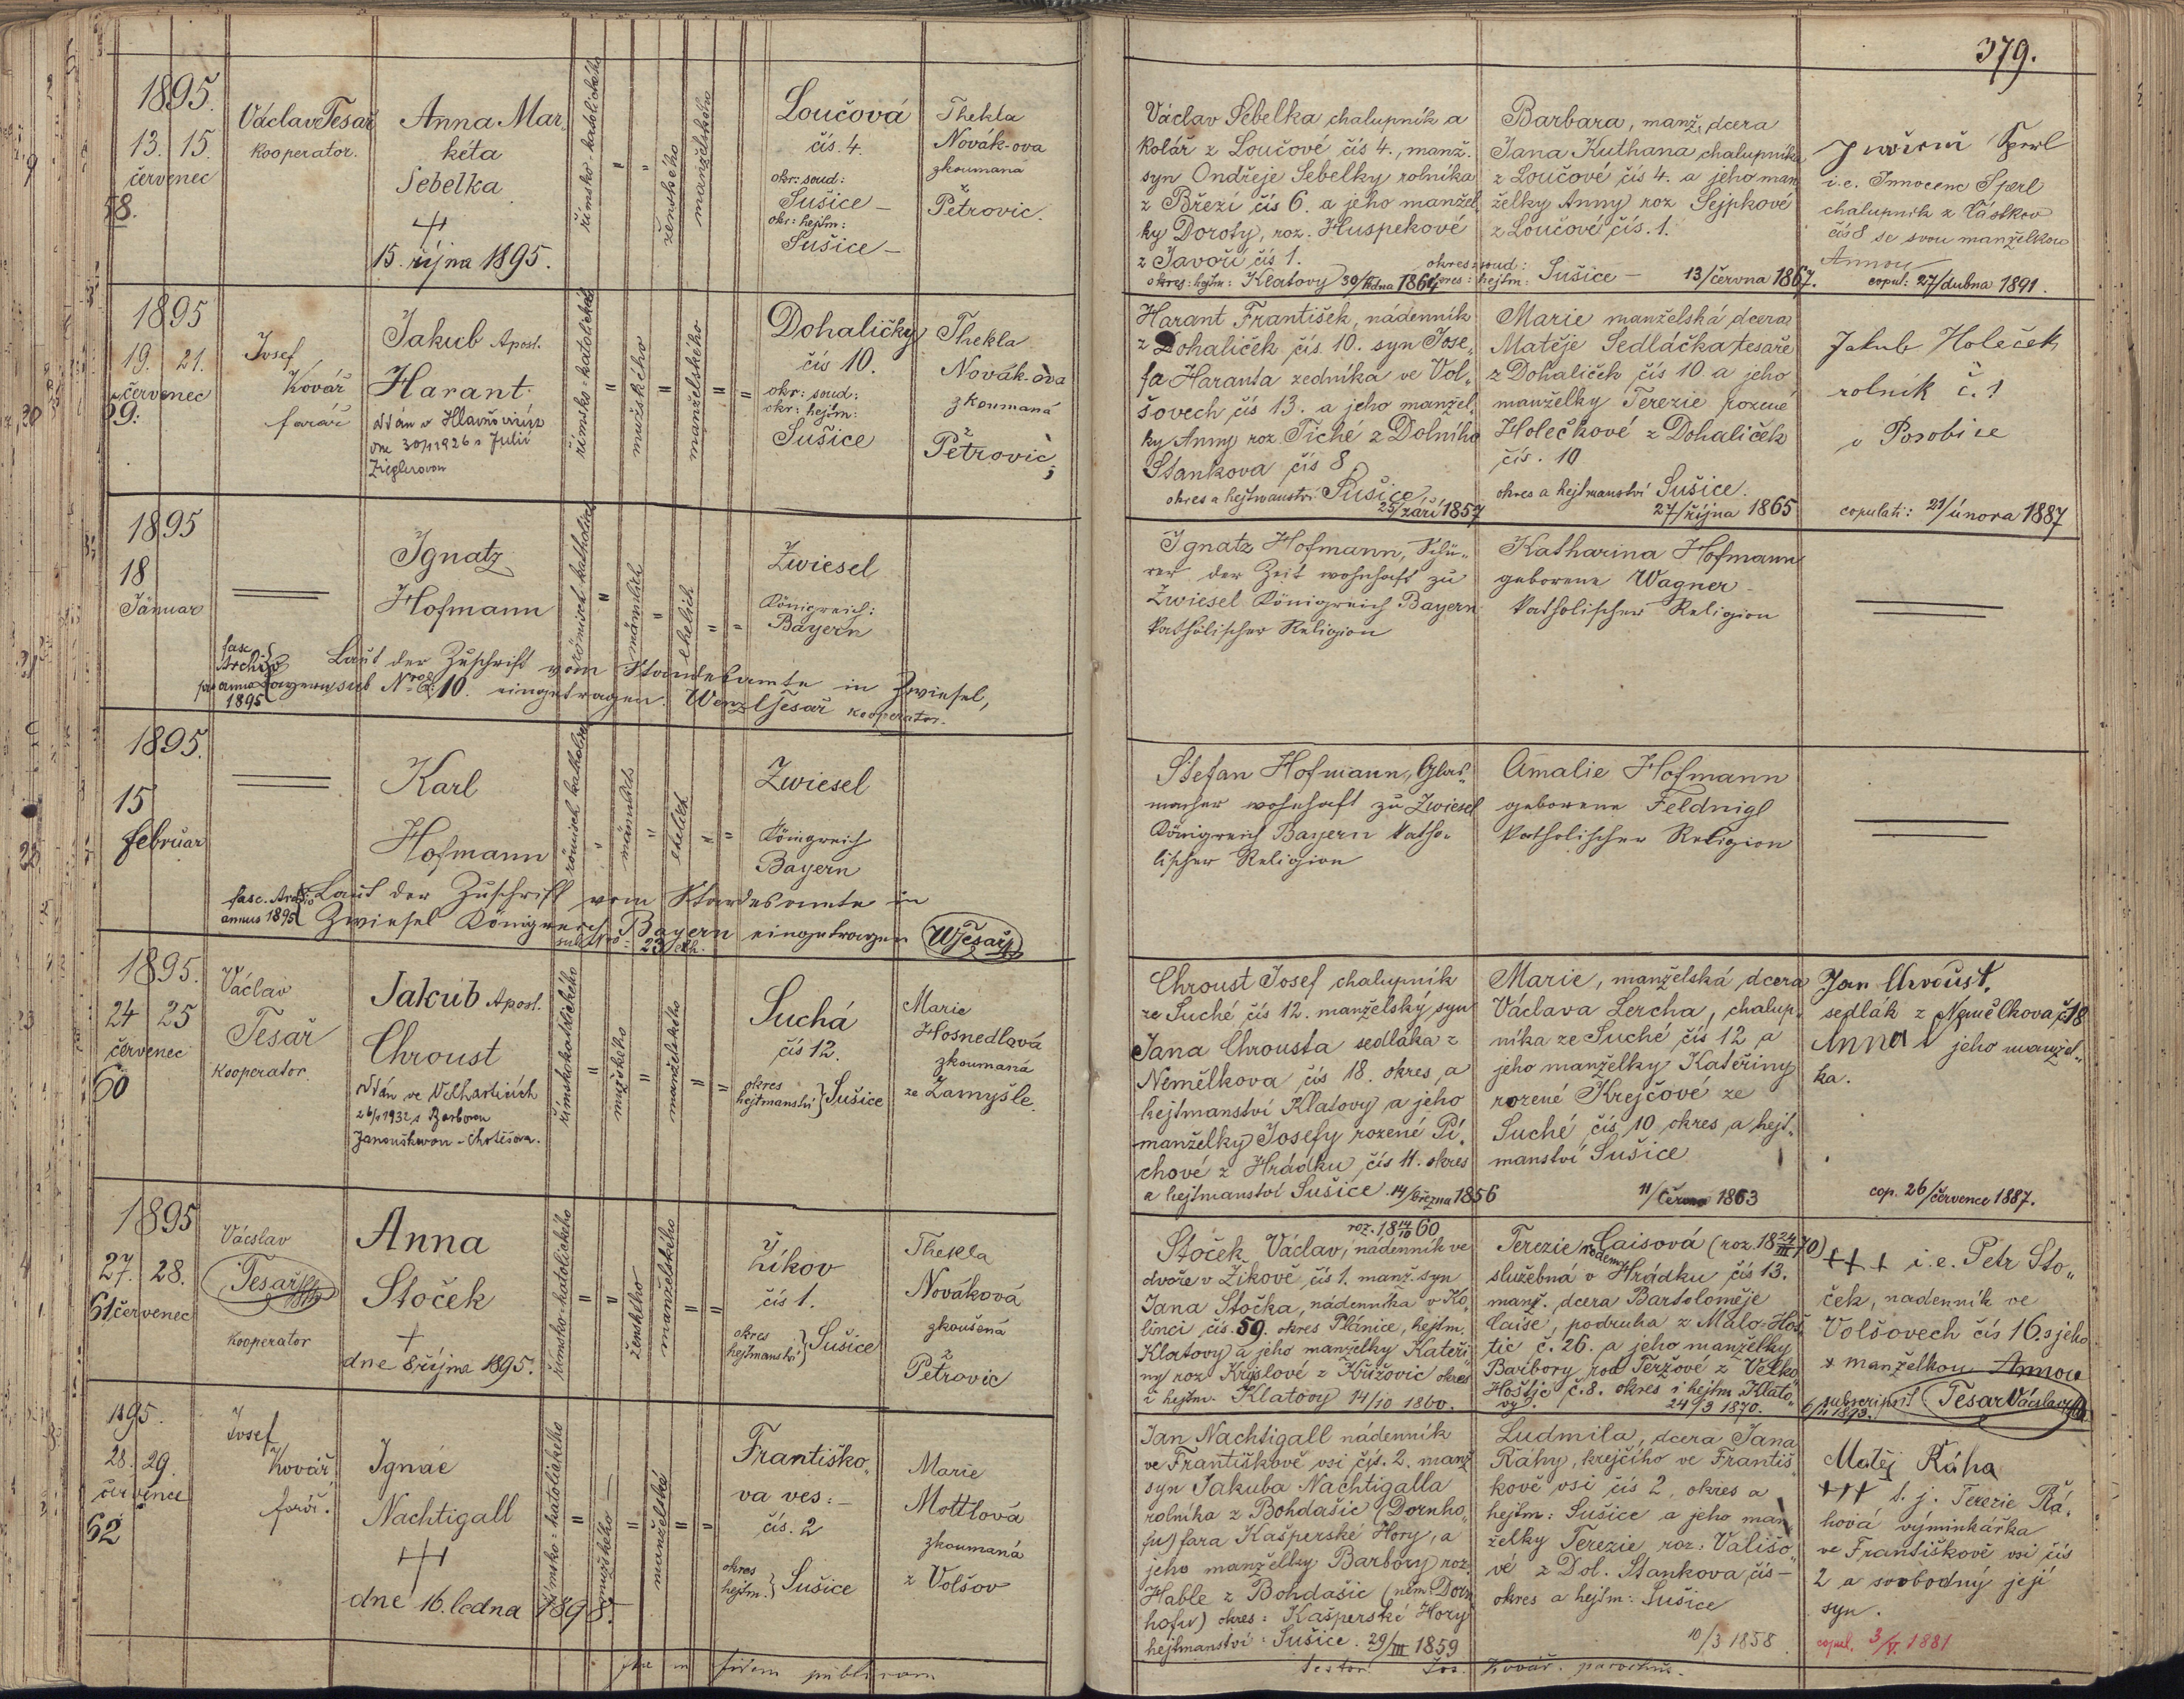 379.
1895.
13. 15.
červenec
58.
Václav Tesař
kooperator.
Anna Mar,
kéta
Šebelka
15. října 1895.
římsko-katolického
"
"
ženského
manželského
Loučová
čís. 4.
okr: soud:
Sušice –
okr: hejtm:
Sušice –
Thekla
Novák-ova
zkoumaná
z
Petrovic.
Václav Šebelka chalupník a
kolář z Loučové čís 4., manž.
syn Ondřeje Šebelky rolníka
z Březí čís 6. a jeho manžel
ky Doroty, roz. Huspekové
z Javoří čís 1.
okres: hejtm: Klatovy 30/ledna 1864
Barbara, manž. dcera
Jana Kuthana chalupníka
z Loučové čís 4. a jeho man
želky Anny roz Sejpkové
z Loučové čís. 1.
okres: soud:
okres: hejtm: Sušice – 13/června 1867.
Sperl
i.e. Innocenc Sperl
chalupník z Částkov
čís 8 se svou manželkou
Annou
copul: 27/dubna 1891.
1895
19. 21.
červenec
59.
Josef
Kovář
farář
Jakub Apost.
Harant
1926 s Julií
Zieglerovou
římsko-katolické
=
mužského
=
manželského
=
=
Dohaličky
čís 10.
okr: soud:
okr: hejtm:
Sušice
Thekla
Novák-ova
zkoumaná
z
Petrovic
Harant František, nádenník
z Dohaliček čís. 10. syn Jose,,
fa Haranta zedníka ve Vol,,
šovech čís 13. a jeho manžel,
ky Anny roz. Tiché z Dolního
Stankova čís 8.
okres a hejtmanství Sušice
25/září 1857
Marie manželská dcera
Matěje Sedláčka tesaře
z Dohaliček čís 10. a jeho
manželky Terezie rozené
Holečkové z Dohaliček
čís. 10
okres a hejtmanství Sušice.
27/října 1865
Jakub Holeček
rolník č. 1
v Porobice
copulati: 21/února 1887
1895
18
Jänuar
Ignatz
Hofmann
römisch katholisch
=
männlich
"
ehelich
"
"
Zwiesel
Königreich:
Bayern
fasc
Archiv
pro anno
1895
Laut der Zuschrift vom Standesamte in Zwiesel,
Bayern sub Nro 10. eingetragen. Wenzl Tesař kooperator.
Ignatz Hofmann,
rer der Zeit wohnhaft zu
Zwiesel Königreich Bayern
katholischer Religion
Katharina Hofmann
geborene Wagner
katholischer Religion
1895.
15
februar
Karl
Hofmann
römisch katholisch
"
männlich
"
ehelich
"
"
Zwiesel
Königreich
Bayern
fasc. Archiv
annus 1895
Laut der Zuschrift vom Standesamte in
Zwiesel Königreich Bayern eingetragen WTesař
sub Nro: 23
Stefan Hofmann, Glas,,
macher wohnhaft zu Zwiesel
Königreich Bayern katho,,
lischer Religion
Amalie Hofmann
geborene Feldnigl
katholischer Religion
1895.
24 25
červenec
60
Václav
Tesař
kooperator
Jakub Apost.
Chroust
oddán ve Velharticích
1932 s Barborou
Janouškovou
římskokatolického
=
mužského
=
manželského
=
=
Suchá
čís 12.
okres
hejtmanství } Sušice
Marie
Hosnedlová
zkoumaná
ze Zamyšle.
Chroust Josef chalupník
ze Suché čís 12. manželský syn
Jana Chrousta sedláka z
Nemělkova čís 18. okres a
hejtmanství Klatovy a jeho
manželky Josefy rozené Pí,
chové z Hrádku čís 11. okres
a hejtmanství Sušice. 14/března 1856
Marie, manželská dcera
Václava Lercha, chalup,
níka ze Suché čís 12 a
jeho manželky Kateřiny
rozené Krejčové ze
Suché čís 10 okres a hejt,,
manství Sušice
11/června 1863
Jan Chroust,
sedlák z Nemělkova č. 18
Anna jeho manžel,,
ka.
cop. 26/července 1887.
1895
27. 28.
61 červenec
Václav
Tesař
kooperator
Anna
Stoček
dne 8 října 1895.
římsko-katolického
=
=
ženského
manželského
=
=
Žíkov
čís 1.
okres
hejtmanství } Sušice
Thekla
Nováková
zkoušená
z
Petrovic
roz. 18 14/10 60
Stoček Václav, nádenník ve
dvoře v Žíkově čís 1. manž. syn
Jana Stočka, nádenníka v Ko,
linci čís. 59. okres Plánice, hejtm.
Klatovy a jeho manželky Kateři
ny roz Kryslové z Křížovic okres
i hejtm. Klatovy 14/10 1860.
Terezie Caisová (roz. 18 24/III 70)
rodem
služebná v Hrádku čís 13.
manž. dcera Bartoloměje
Caise, podruha z Malo-Hoš
tic č. 26. a jeho manželky
Barbory rod Teržové z Velko
Hoštic č. 8. okres i hejtm Klato,,
vy. 24/3 1870.
+++ i.e. Petr Sto,,
ček, nadenník ve
Volšovech čís 16. s jeho
+ manželkou Annou
subscripsit Tesař Václav
1893.
1895.
28. 29.
července
62
Josef
Kovář
farář.
Ignác
Nachtigall
dne 16. ledna 1898.
římsko-katolického
=
mužského –
=
manželské
=
=
Františko,,
va ves: –
čís. 2
okres
hejtm. } Sušice
Marie
Mottlová
zkoumaná
z Volšov
Jan Nachtigall nádenník
ve Františkově vsi čís. 2. manž
syn Jakuba Nachtigalla
rolníka z Bohdašic (Dornho,,
fu) fara Kašperské Hory, a
jeho manželky Barbory roz.
Hable z Bohdašic (něm. Dorn
hofu) okres: Kašperské Hory
hejtmanství: Sušice. 29/III 1859
Ludmila, dcera Jana
Ráhy, krejčího ve Františ,
kově vsi čís 2, okres a
hejtm: Sušice a jeho man
želky Terezie roz: Vališo,,
vé z Dol. Stankova čís –
okres a hejtm: Sušice
10/3 1858
Matěj Ráha
+++ t. j. Terezie Rá,
hová výminkářka
ve Františkově vsi čís
2 a svobodný její
syn.
copul. 3/V. 1881
in fidem publicam
testor Jos. Kovář. parochus.